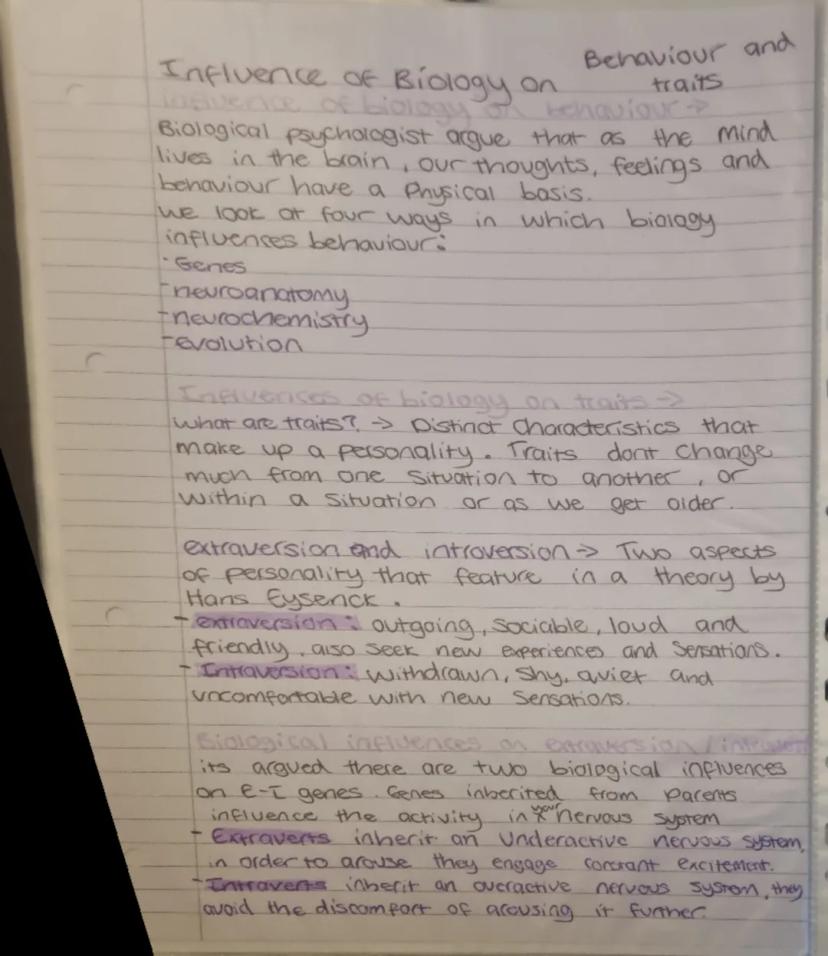 Influence of Biology on Behaviour and traits
influence of biology on behaviour →
Biological psychologist argue that as the mind
lives in the brain, our thoughts, feelings and
behaviour have a Physical basis.
we look at four ways in which biology
influences behaviour:
· Genes
-neuroanatomy
-neurochemistry
-evolution
Influences of biology on traits →
what are traits? → Distinct characteristics that
make up a personality. Traits dont change
much from one situation to another, or
within a situation or as we get older.
extraversion and introversion → Two aspects
of personality that feature in a theory by
Hans Eysenck.
- extraversion: outgoing, sociable, loud and
friendly, also seek new experiences and sensations.
- Intraversion: withdrawn, shy, quiet and
uncomfortable with new sensations.
Biological influences on extraversion/
its argued there are two biological influences
on E-I genes. Genes inherited from parents
influence the activity in your nervous system
- Extraverts inherit an underactive nervous system,
in order to arouse they engage constant excitement.
- Intraverts inherit an overactive nervous system, they
avoid the discomfort of arousing it further.